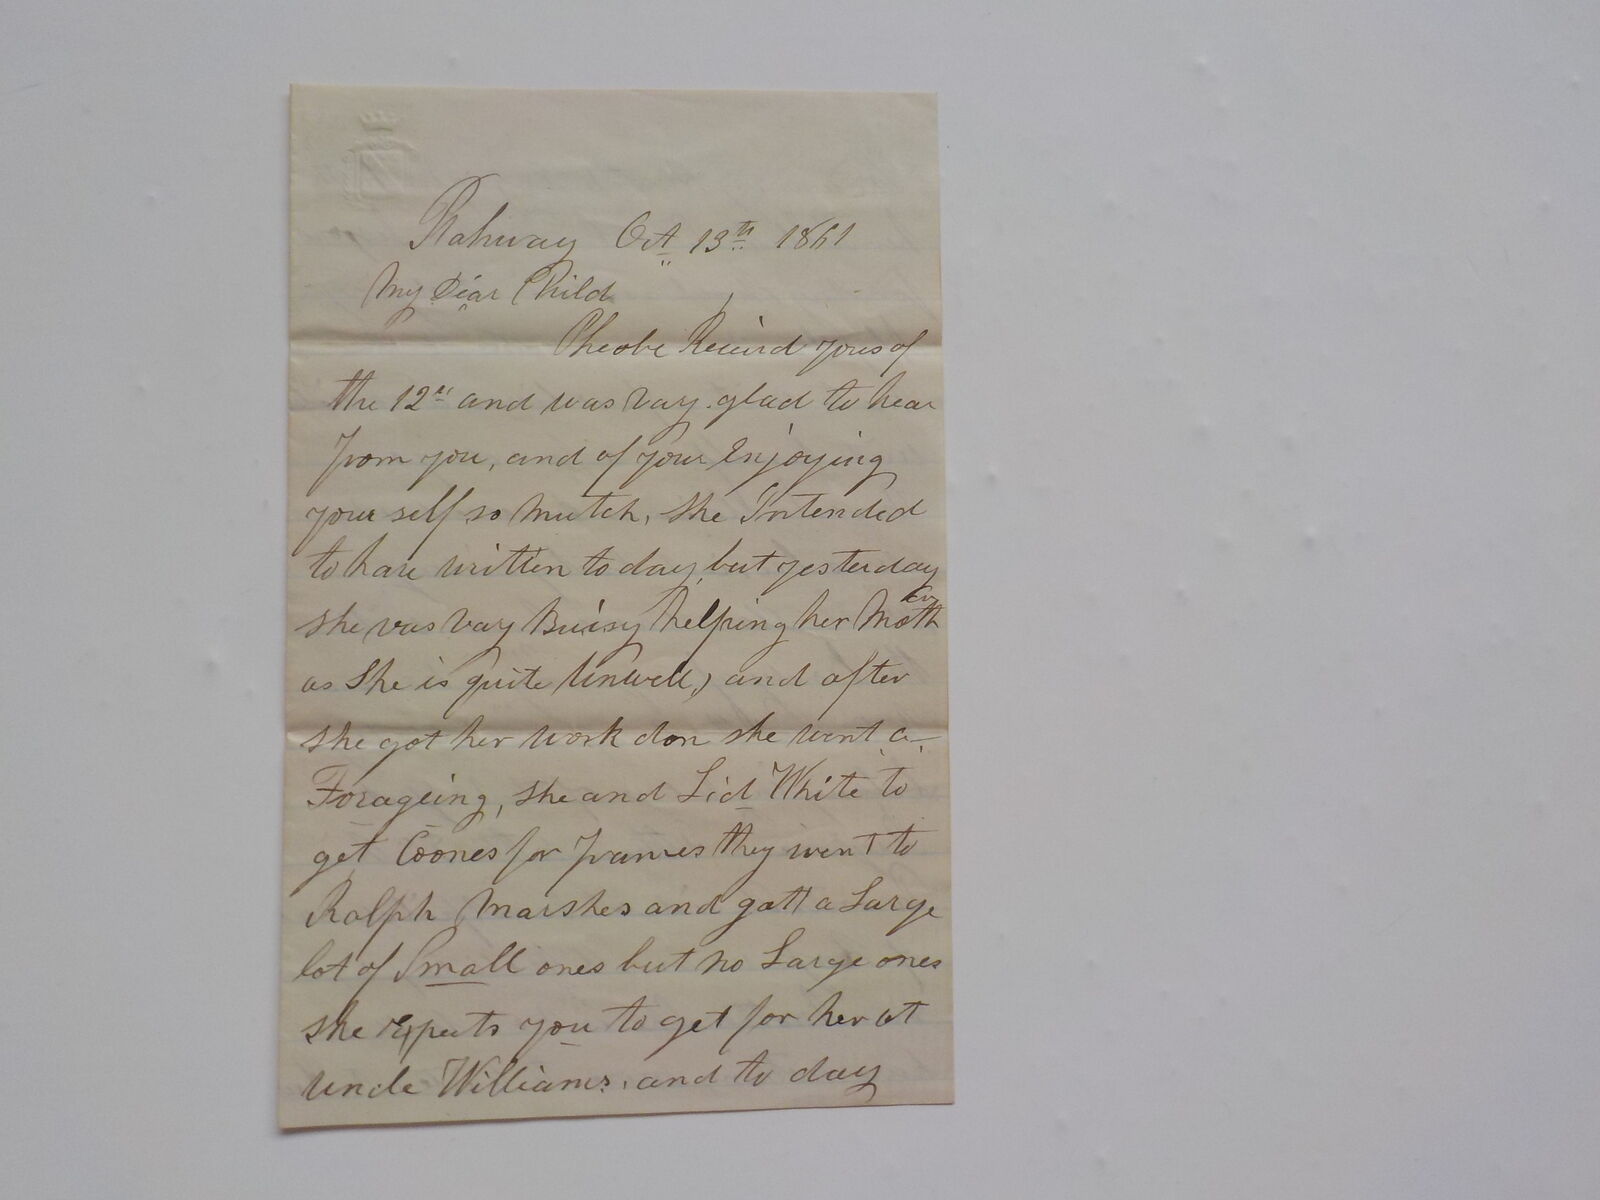 Rahway Oct 13th 1861
My Dear Child
Pheobe Recievd yous of
the 12th and was vary glad to hear
from you, and of your Enjoying
your self so mutch, she Intended
to have written to day, but yesterday
she was vary Buisy helping her Mother
as she is quite Unwell, and after
she got her work don she went a-
Forageing, she and Lid White to
get Coones for frames they went to
Ralph Marshes and gott a Large
lot of Small ones but no Large ones
she expects you to get for her at
uncle Williams, and to day